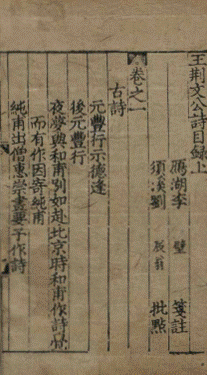 王荆文公詩目録上
鴈湖李 壁 箋註
須溪劉 辰翁 批點
卷之一
古詩
元豐行示德逢
後元豐行
夜夢與和甫別如赴北京時和甫作詩覺
而有作因寄純甫
純甫出僧惠崇畫要予作詩